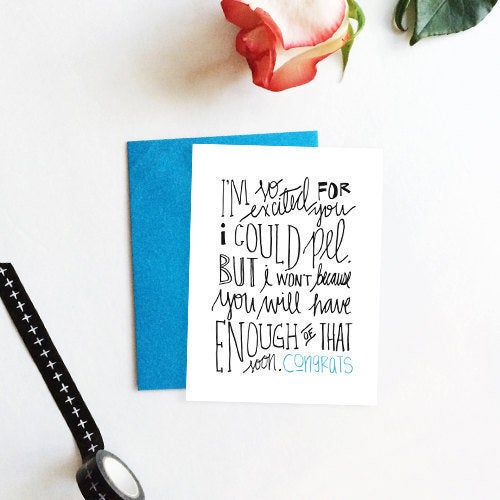 I'M so FOR
excited you
i COULD pel.
BUT i WON'T because
you will have
ENOUGH OF THAT
soon. CONGRATS